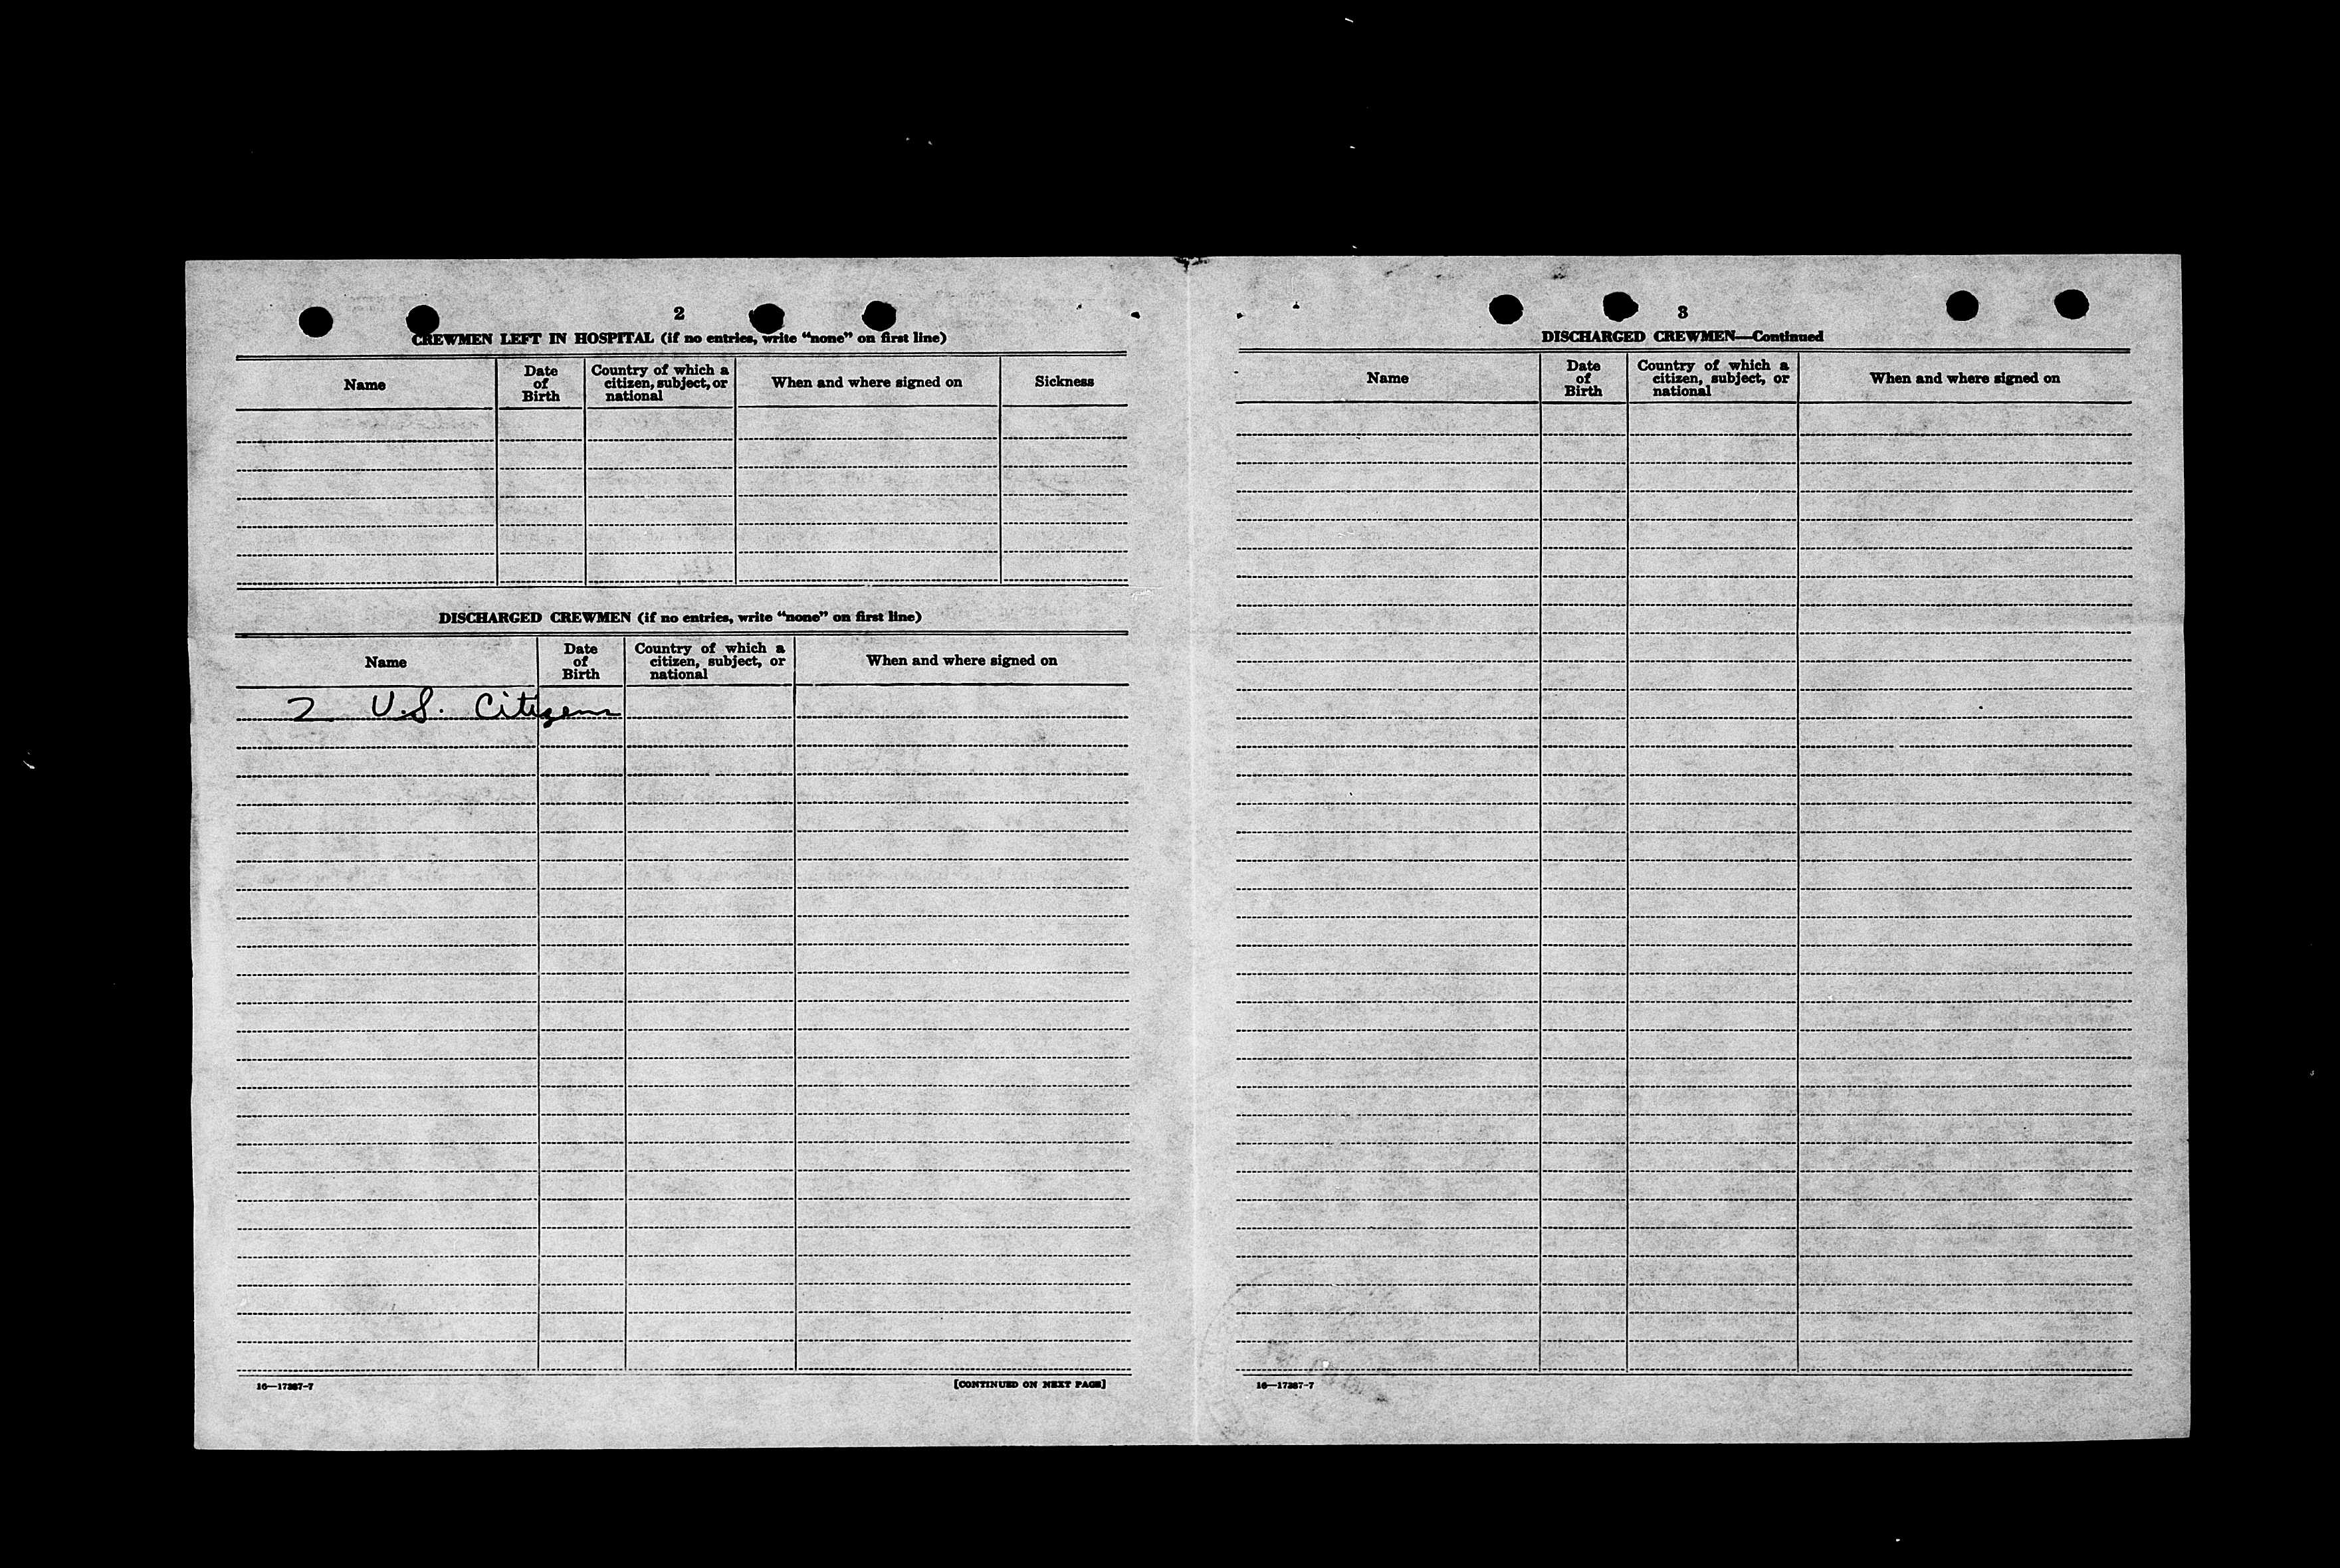 2
CREWMEN LEFT IN HOSPITAL (if no entries, write "none" on first line)
Name
Date
of
Birth
Country of which a
citizen, subject, or
national
When and where signed on
Sickness
DISCHARGED CREWMEN (if no entries, write "none" on first line)
Name
Date
of
Birth
Country of which a
citizen, subject, or
national
When and where signed on
2 U.S. Citizens
16—17387-7
[CONTINUED ON NEXT PAGE]
3
DISCHARGED CREWMEN—Continued
Name
Date
of
Birth
Country of which a
citizen, subject, or
national
When and where signed on
16—17387-7